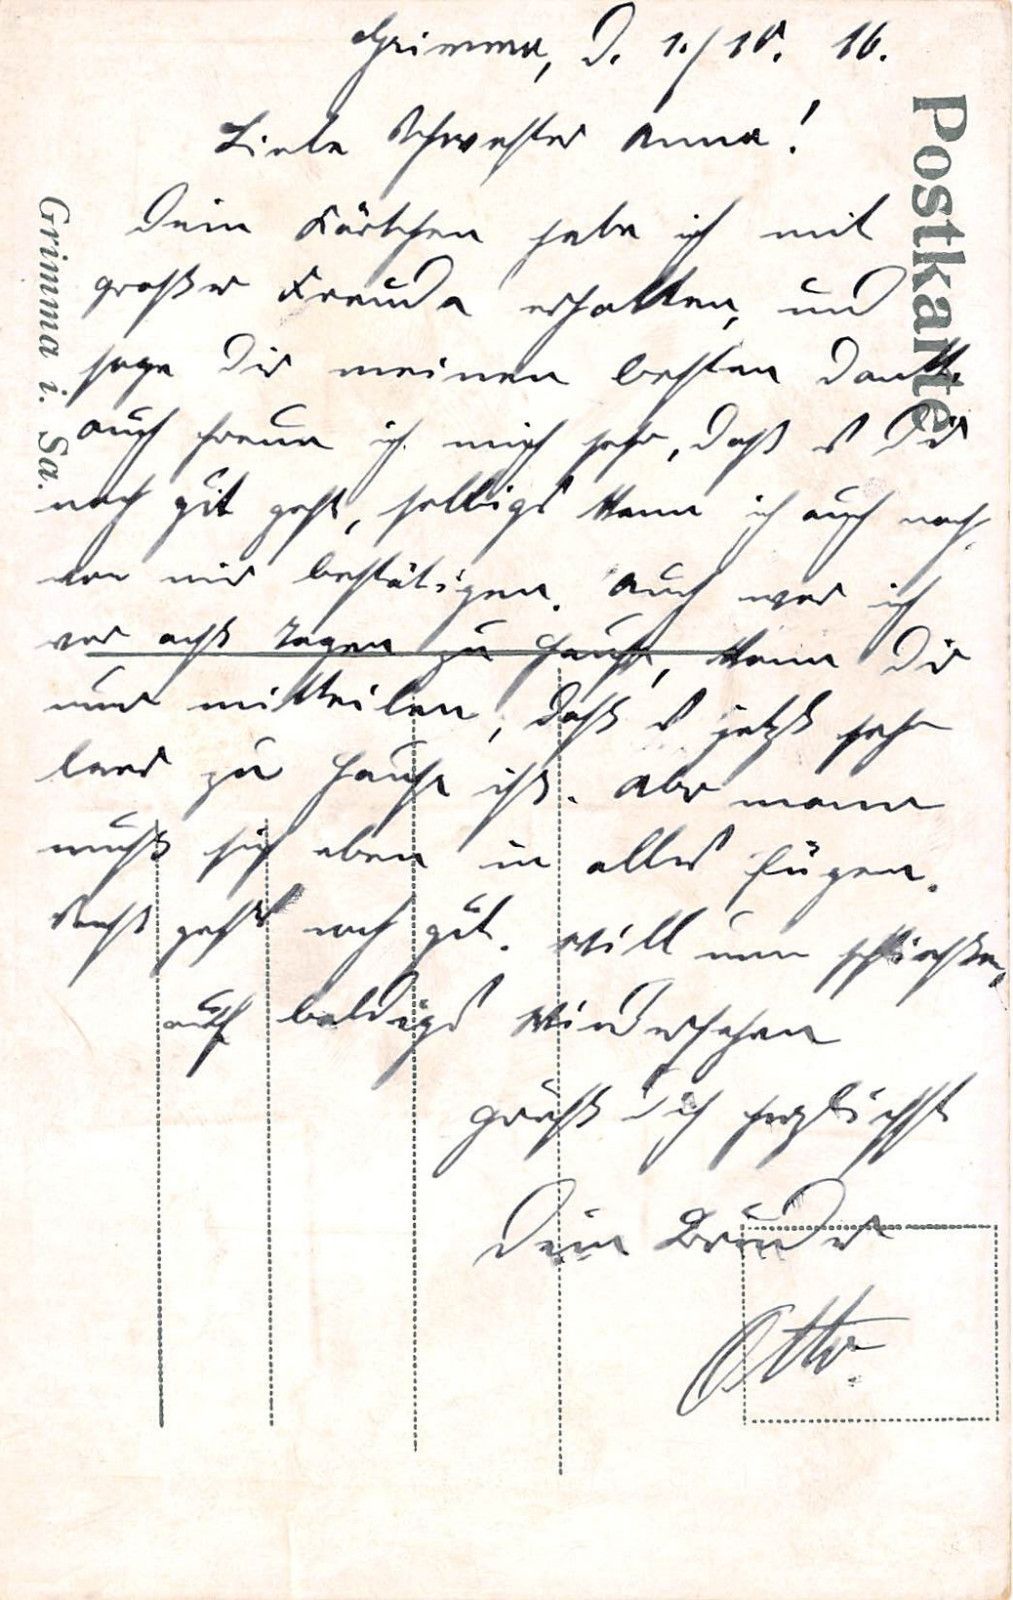 Grimma, d. 1./10. 16.
Liebe Schwester Anna!
Dein Kärtchen habe ich mit
großer Freude erhalten, und
sage Dir meinen besten Dank.
auch freue ich mich sehr, daß es Dir
noch gut geht, selbiges kann ich auch noch
von mir bestätigen. Auch war ich
vor acht Tagen zu Hause, kann Dir
nur mitteilen, daß es jetzt sehr
leer zu Hause ist. Aber mann
muß sich eben in alles fügen.
Sonst geht noch gut. Will nun schließen,
auf baldiges Wiedersehen
grüßt dich herzlichst
Dein Bruder
Otto.
Postkarte
Grimma i. Sa.